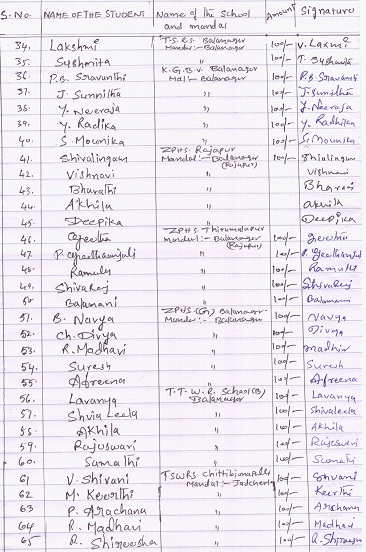 S.No. NAME OF THE STUDENT Name of the school and mandal Amount Signature
34. Lakshmi T.S.R.S. Balanagar Mandal:- Balanagar 100/- V. Laxmi
35. Sushmita " 100/- T. Sushmita
36. P.B. Sravanthi K.G.B.V. Balanagar Mdl:- Balanagar 100/- P.B. Sravanti
37. J. Sunnitha " 100/- J. Sunidha
38. Y. Neeraja " 100/- Y. Neeraja
39. Y. Radika " 100/- Y. Radhika
40. S. Mounika " 100/- S. Mounika
41. Shivalingam ZPHS. Rajapur Mandal:- Balanagar (Rajapur) 100/- Shivalingam
42. Vishnavi " 100/- Vishnavi
43. Bharathi " 100/-
44. Akhila " 100/- Akhila
45. Deepika " 100/- Deepika
46. Geetha ZPHS. Thirumalapur Mandal:- Balanagar (Rajapur) 100/- Geetha
47. P. Geethaanjali " 100/- P. Geethanjali
48. Ramulu " 100/- Ramulu
49. Shivaraj " 100/- Shivaraj
50. Balamani " 100/- Balamani
51. B. Navya ZPHS (G) Balanagar Mandal:- Balanagar 100/- Navya
52. Ch. Divya " 100/- Divya
53. R. Madhavi " 100/-
54. Suresh " 100/- Suresh
55. Afreena " 100/- Afreena
56. Lavanya T.T.W.R. School (B) Balanagar 100/- Lavanya
57. Shvia Leela " 100/- Shivaleela
58. Akhila " 100/- Akhila
59. Rajeswari " 100/- Rajeswari
60. Sumathi " 100/- Sumathi
61 V. Shivani TSWRS Mandal:- Jadcherla 100/- Shivani
62 M. Keerthi " 100/- Keerthi
63 P. Arachana " 100/- Archana
64 R. Madhavi " 100/- Madhavi
65 R. " 100/- R.